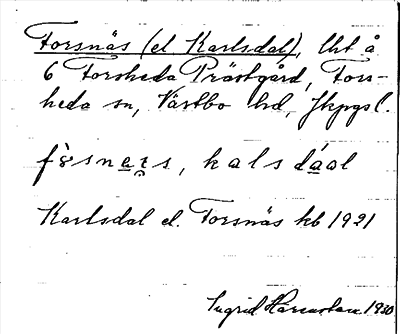 Forsnäs (el Karlsdal), lht å
6 Forsheda Prästgård, Fors-
heda sn, Västbo hd, Jkpgs l.
Karlsdal el. Forsnäs kb 1921
Ingrid 1930